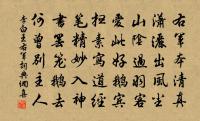 右軍本清真
瀟灑出風塵
山陰過羽客
愛此好鵝賓
掃素寫道經
筆精妙入神
書罷籠鵝去
何曾別主人
李白王右軍詞典網